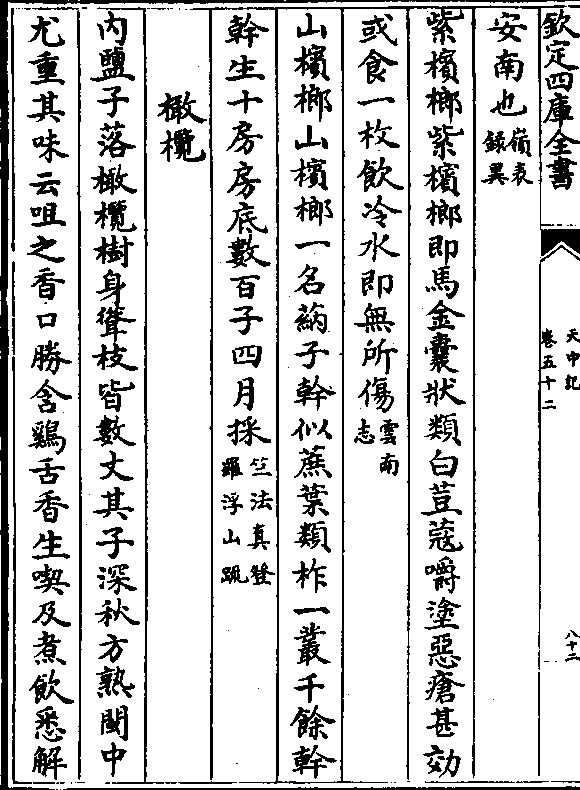 欽定四庫全書
天中記
卷五十二
八十二
安南也嶺表錄異
紫檳榔紫檳榔即馬金囊狀類白荳蔻嚼塗惡瘡甚効
或食一枚飲冷水即無所傷雲南志
山檳榔山檳榔一名蒳子幹似蔗葉類柞一叢千餘幹
幹生十房房底數百子四月採竺法真登羅浮山疏
橄欖
內鹽子落橄欖樹身聳枝皆數丈其子深秋方熟閩中
尤重其味云咀之香口勝含鷄舌香生喫及煮飲悉解